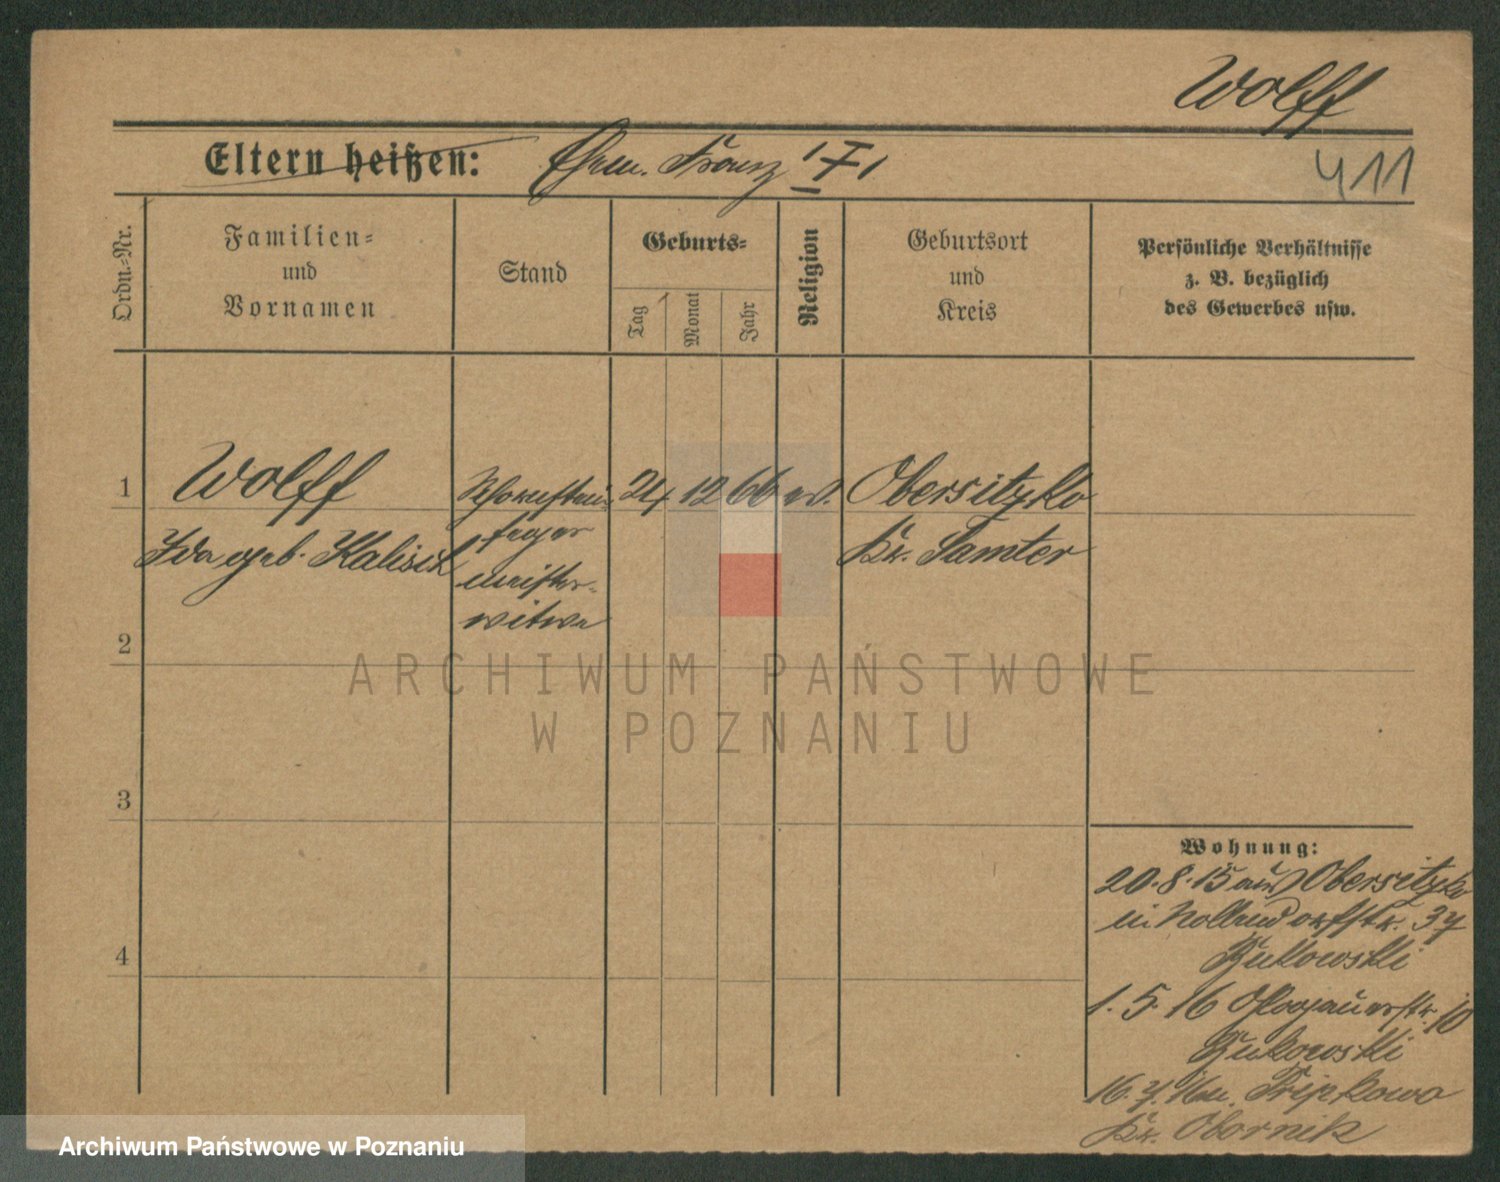 Wolff
Eltern heißen: Ehem. Franz
411
Ordn.-Nr.
Familien-
und
Vornamen
Stand
Geburts-
Tag
Monat
Jahr
Religion
Geburtsort
und
Kreis
Persönliche Verhältnisse
z. B. bezüglich
des Gewerbes usw.
1 Wolff Schornstein- 24 12 66 ev. Obersitzko
Ida geb. Kalisch feger Kr. Samter
meister-
witwe
2
3
4
Wohnung:
20.8.15 aus Obersitzko
in Nollendorfstr. 37
Bukowski
1.5.16 Glogauerstr. 10
Bukowski
16.7.16 n. Pripkowo
Kr. Obornik
ARCHIWUM PAŃSTWOWE
W POZNANIU
Archiwum Państwowe w Poznaniu